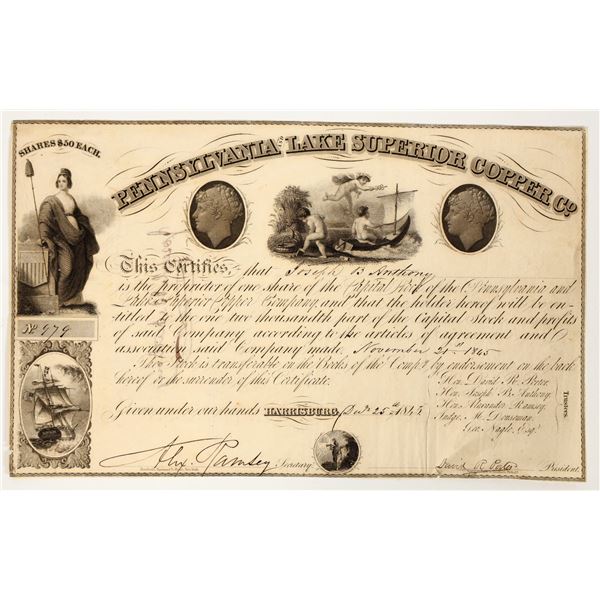 SHARES $50 EACH.
PENNSYLVANIA & LAKE SUPERIOR COPPER Co.
This Certifies, that Joseph B Anthony
is the proprietor of one share of the Capital Stock of the Pennsylvania and
Lake Superior Copper Company, and that the holder hereof will be en-
titled to the one two thousandth part of the Capital Stock and profits
of said Company according to the articles of agreement and
association said Company made November 21st 1845
The Stock is transferable on the Books of the Compy by endorsement on the back
hereof or the surrender of this Certificate.
No 979
Hon. David R. Porter.
Hon. Joseph B. Anthony.
Hon. Alexander Ramsey.
Judge. M. Dousman.
Geo. Nagle. Esqr.
Trustees.
Given under our hands HARRISBURG, Dec 25th 1845
Alex. Ramsey Secretary.
David R. Porter President.